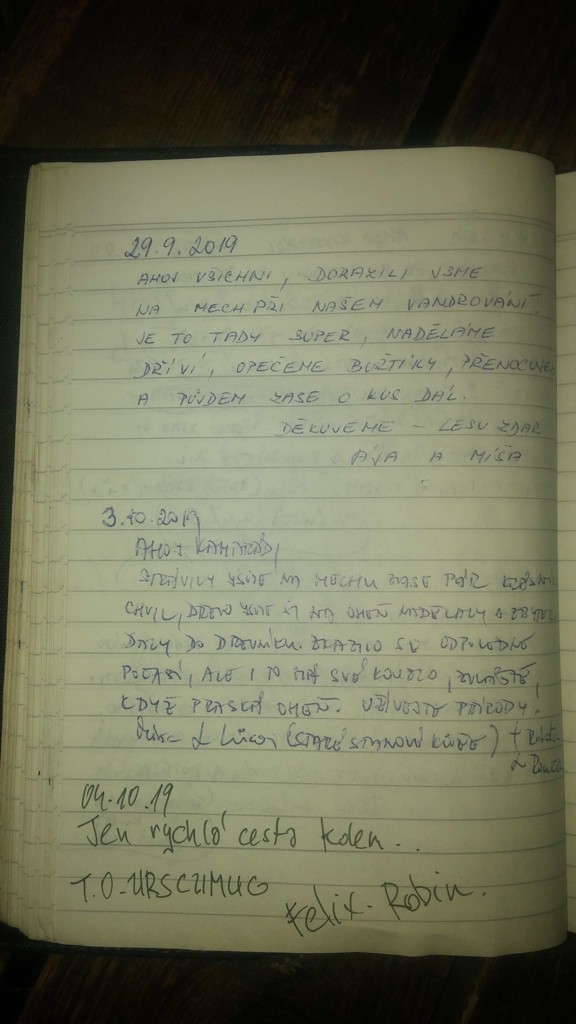 29.9.2019
AHOJ VŠICHNI, DORAZILI JSME
NA MECH PŘI NAŠEM VANDROVÁNÍ.
JE TO TADY SUPER, NADĚLÁME
DŘÍVÍ, OPEČEME BUŘTÍKY, PŘENOCUJEM
A PŮJDEM ZASE O KUS DÁL.
DĚKUJEME – LESU ZDAR
ÁJA A MÍŠA
3.10.2019
AHOJ KAMARÁDI,
STRÁVILY JSME NA MECHU ZASE PÁR
CHVIL, DŘEVO JSME SI NA OHEŇ NADĚLALY A ZBYTEK
DALY DO DŘEVNÍKU. ZKAZILO SE ODPOLEDNE
POČASÍ, ALE I TO MÁ SVÉ KOUZLO, ZVLÁŠTĚ,
KDYŽ PRASKÁ OHEŇ. UŽÍVEJTE PŘÍRODY.
(STARÉ STANOVÉ KŮŽE) +
04.10.19
Jen rychlá cesta kolem..
T.O. URSCUMUG
Felix - Robin.